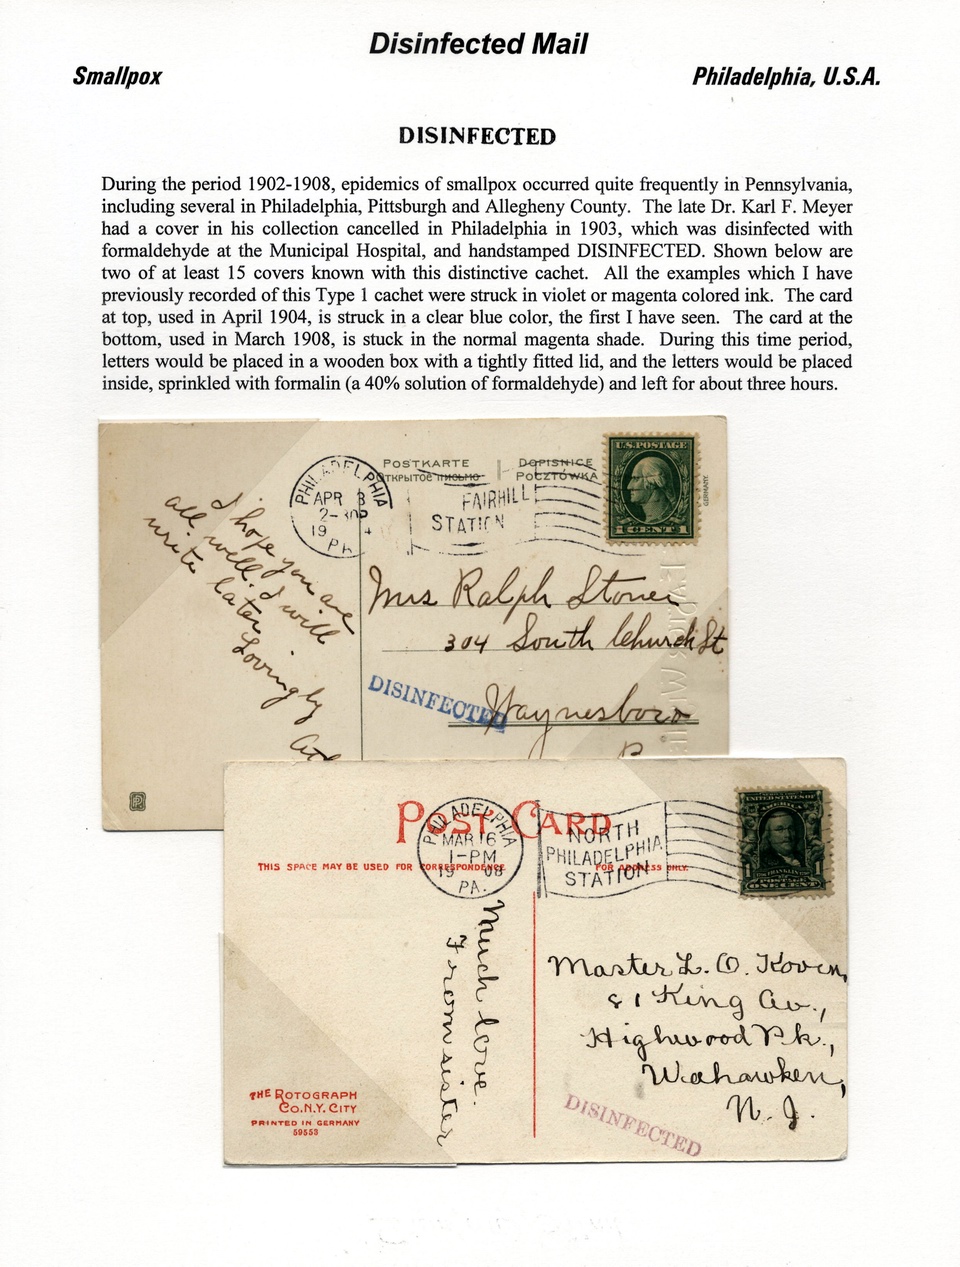 Disinfected Mail
Smallpox
Philadelphia, U.S.A.
DISINFECTED
During the period 1902-1908, epidemics of smallpox occurred quite frequently in Pennsylvania,
including several in Philadelphia, Pittsburgh and Allegheny County. The late Dr. Karl F. Meyer
had a cover in his collection cancelled in Philadelphia in 1903, which was disinfected with
formaldehyde at the Municipal Hospital, and handstamped DISINFECTED. Shown below are
two of at least 15 covers known with this distinctive cachet. All the examples which I have
previously recorded of this Type 1 cachet were struck in violet or magenta colored ink. The card
at top, used in April 1904, is struck in a clear blue color, the first I have seen. The card at the
bottom, used in March 1908, is stuck in the normal magenta shade. During this time period,
letters would be placed in a wooden box with a tightly fitted lid, and the letters would be placed
inside, sprinkled with formalin (a 40% solution of formaldehyde) and left for about three hours.
POSTKARTE
DOPISNICE
ОТКРЫТОЕ ПИСЬМО
POCZTÓWKA
PHILADELPHIA
APR 3
2-30P
19 4
PA
FAIRHILL
STATION
U.S. POSTAGE
1 CENT 1
GERMANY.
I hope you are
all well. I will
write later
Lovingly
Mrs Ralph Stoner
304 South Church St
Waynesboro
DISINFECTED
POST CARD
PHILADELPHIA
MAR 16
1-PM
19 08
PA.
NORTH
PHILADELPHIA
STATION
UNITED STATES OF
AMERICA
FRANKLIN
POSTAGE
ONE CENT
THIS SPACE MAY BE USED FOR CORRESPONDENCE
FOR ADDRESS ONLY.
Much love.
From sister
Master L. O. Koven,
81 King Av.,
Highwood Pk.,
Wahawken,
N. J.
DISINFECTED
THE ROTOGRAPH
CO. N.Y. CITY
PRINTED IN GERMANY
59553